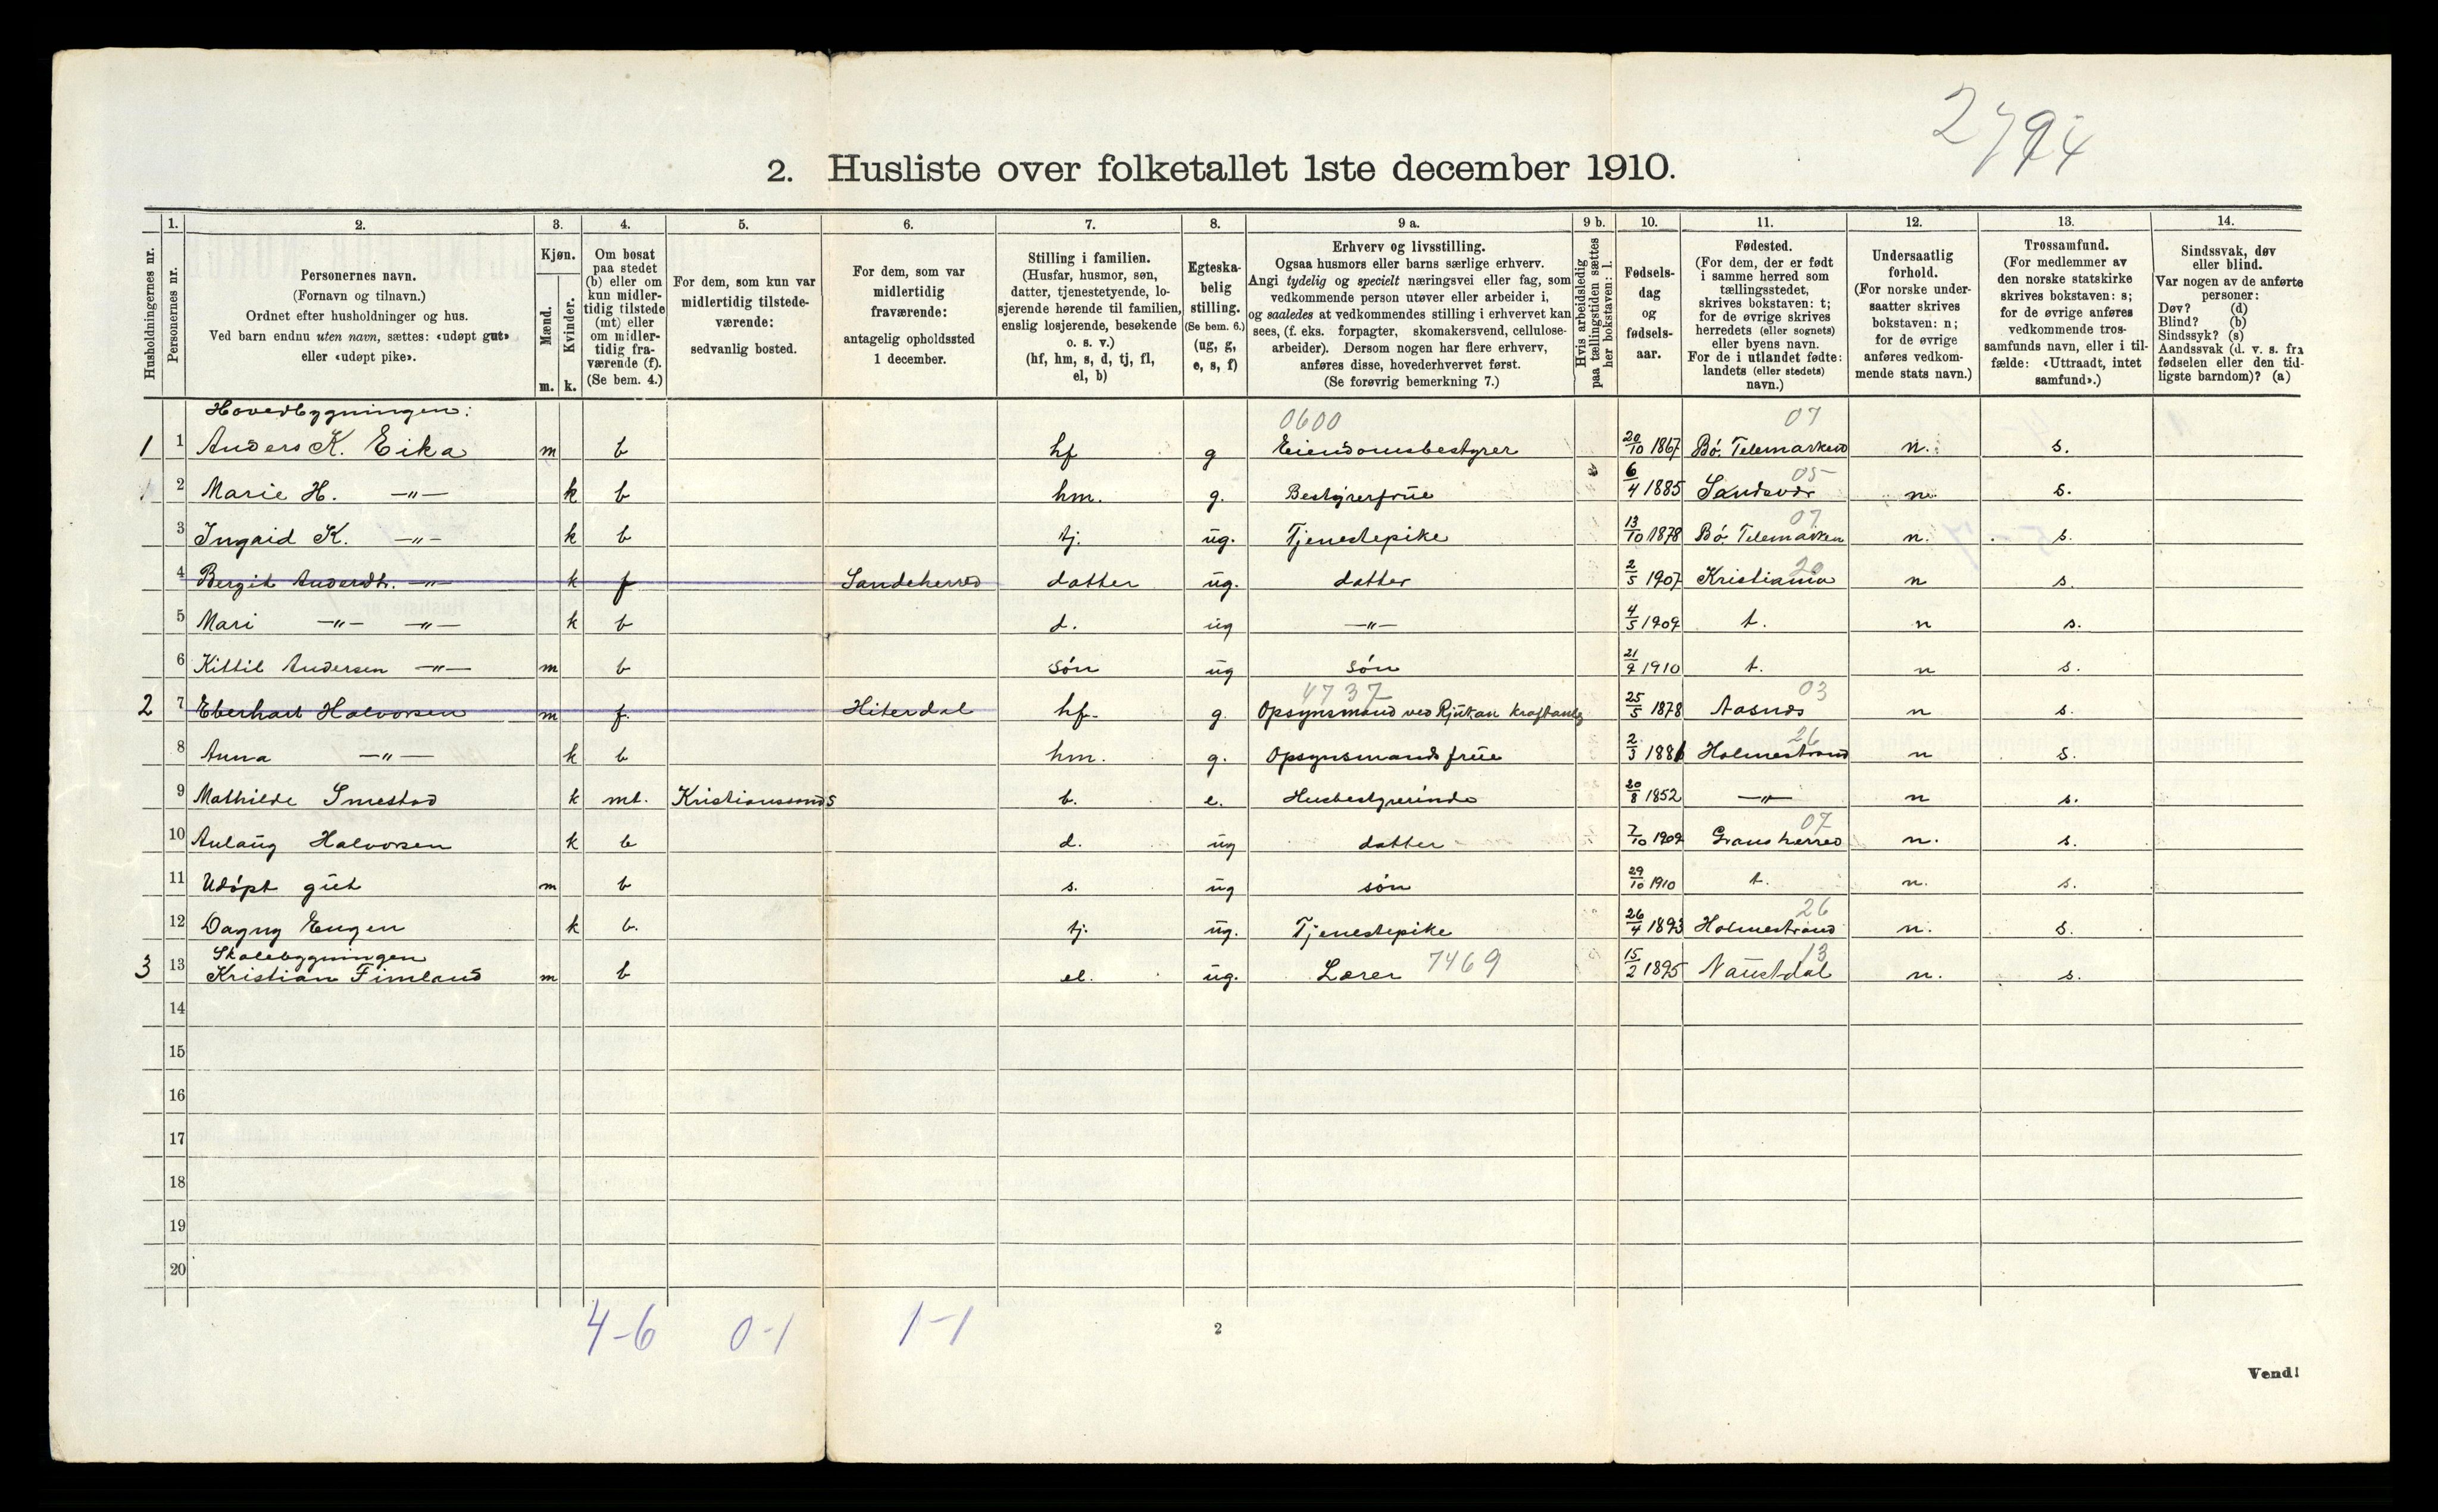 2794
2. Husliste over folketallet 1ste december 1910.
1. 2. 3. 4. 5. 6. 7. 8. 9 a. 9 b. 10. 11. 12. 13. 14.
Husholdningernes nr.
Personernes nr.
Personernes navn.
(Fornavn og tilnavn.)
Ordnet efter husholdninger og hus.
Ved barn endnu uten navn, sættes: «udøpt gut»
eller «udøpt pike».
Kjøn.
Mænd.
Kvinder.
m. k.
Om bosat
paa stedet
(b) eller om
kun midler-
tidig tilstede
(mt) eller
om midler-
tidig fra-
værende (f).
(Se bem. 4.)
For dem, som kun var
midlertidig tilstede-
værende:
sedvanlig bosted.
For dem, som var
midlertidig
fraværende:
antagelig opholdssted
1 december.
Stilling i familien.
(Husfar, husmor, søn,
datter, tjenestetyende, lo-
sjerende hørende til familien,
enslig losjerende, besøkende
o. s. v.)
(hf, hm, s, d, tj, fl,
el, b)
Egteska-
belig
stilling.
(Se bem. 6.)
(ug, g,
e, s, f)
Erhverv og livsstilling.
Ogsaa husmors eller barns særlige erhverv.
Angi tydelig og specielt næringsvei eller fag, som
vedkommende person utøver eller arbeider i,
og saaledes at vedkommendes stilling i erhvervet kan
sees, (f. eks. forpagter, skomakersvend, cellulose-
arbeider). Dersom nogen har flere erhverv,
anføres disse, hovederhvervet først.
(Se forøvrig bemerkning 7.)
Hvis arbeidsledig
paa tællingstiden sættes
her bokstaven: l.
Fødsels-
dag
og
fødsels-
aar.
Fødested.
(For dem, der er født
i samme herred som
tællingsstedet,
skrives bokstaven: t;
for de øvrige skrives
herredets (eller sognets)
eller byens navn.
For de i utlandet fødte:
landets (eller stedets)
navn.)
Undersaatlig
forhold.
(For norske under-
saatter skrives
bokstaven: n;
for de øvrige
anføres vedkom-
mende stats navn.)
Trossamfund.
(For medlemmer av
den norske statskirke
skrives bokstaven: s;
for de øvrige anføres
vedkommende tros-
samfunds navn, eller i til-
fælde: «Uttraadt, intet
samfund».)
Sindssvak, døv
eller blind.
Var nogen av de anførte
personer:
Døv? (d)
Blind? (b)
Sindssyk? (s)
Aandssvak (d. v. s. fra
fødselen eller den tid-
ligste barndom)? (a)
Hovedbygningen: 0600 07
1 1 Anders K. Eika m b hf g Eiendomsbestyrer 20/10 1867 Bø. Telemarken n. s.
05
2 Marie H. —"— k b hm. g. Bestyrerfrue 6/4 1885 Sandsvær n. s.
07
3 Ingrid K. —"— k b tj. ug. Tjenestepike 13/10 1878 Bø. Telemarken n. s.
20
4 Bergit Andersdt. —"— k f Sandeherred datter ug. datter 2/5 1907 Kristiania n s.
5 Mari —"— —"— k b d. ug —"— 4/5 1909 t. n s.
6 Kittil Andersen —"— m b søn ug søn 21/9 1910 t. n s.
4737 03
2 7 Eberhart Halvorsen m f. Hiterdal hf. g. Opsynsmand ved Rjukan kraftanlg 25/5 1878 Aasnes n s.
26
8 Anna —"— k b hm. g. Opsynsmands frue 2/3 1881 Holmestrand n s.
9 Mathilde Smestad k mt. Kristianssands b. e. Husbestyrerinde 20/8 1852 —"— n s.
07
10 Aulaug Halvorsen k b d. ug datter 7/10 1909 Gransherred n. s.
11 Udøpt gut m b s. ug søn 29/10 1910 t. n. s.
26
12 Dagny Engen k b. tj. ug. Tjenestepike 26/4 1893 Holmestrand n. s.
Skolebygningen 13
3 13 Kristian Fimland m b el. ug. Lærer 7469 15/2 1895 Naustdal n. s.
14
15
16
17
18
19
20
4-6 0-1 1-1
2
Vend!